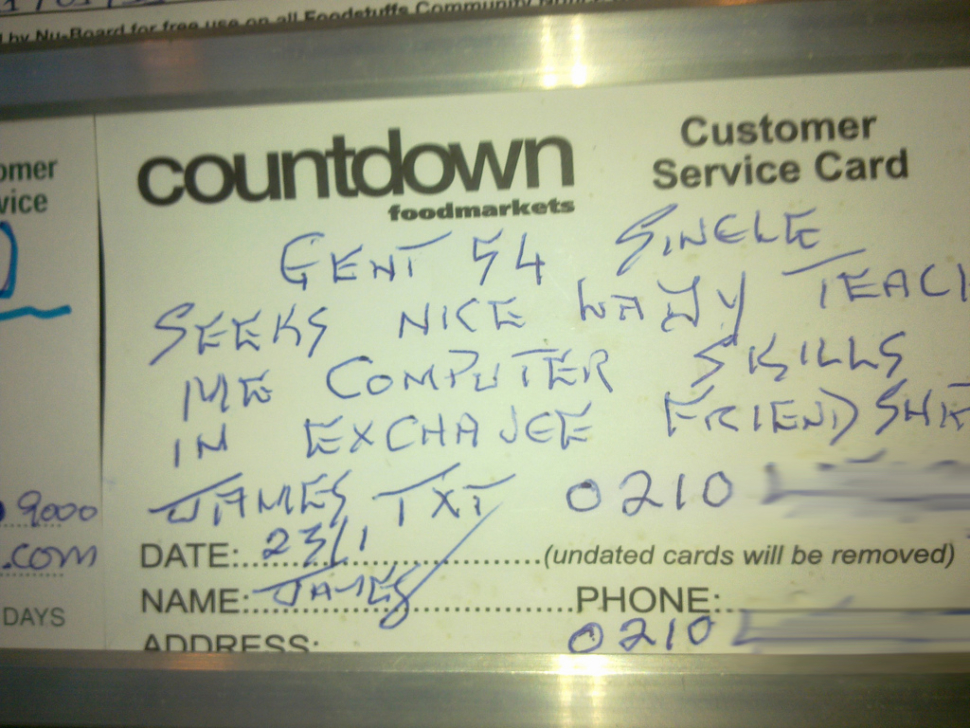 by Nu-Board for free use on all Foodstuffs Community
countdown
foodmarkets
Customer
Service Card
GENT 54 SINGLE
SEEKS NICE LADY TEACH
ME COMPUTER SKILLS
IN EXCHAJGE FRIENDSHI
JAMES TXT 0210
DATE: 23/1 (undated cards will be removed)
NAME: JAMES PHONE:
0210
ADDRESS:
omer
vice
9000
.com
DAYS